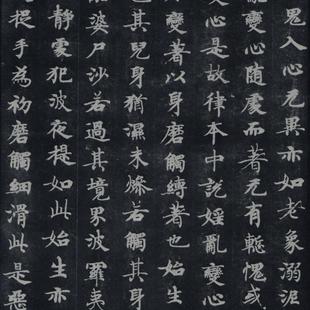 鬼入心无異亦如老象溺泥
亂變心随處而著无有慙愧或
變心是故律本中說婬亂變心
變著以身磨觸縛著也始生
其兒身猶濕未燥若觸其身
婆尸沙若過其境界波羅夷
靜處犯波夜提如此始生亦
捉手為初磨觸細滑此是惡